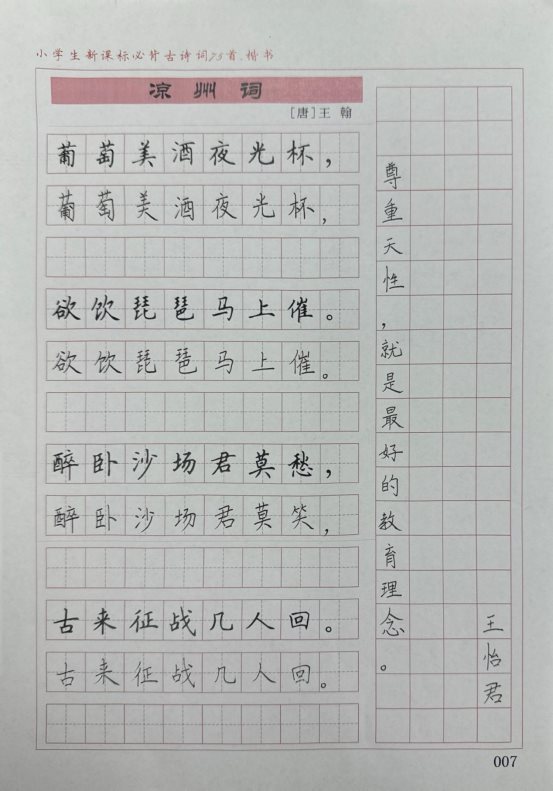 小学生新课标必背古诗词75首.楷书
凉州词
[唐]王 翰
葡萄美酒夜光杯，
葡萄美酒夜光杯，
欲饮琵琶马上催。
欲饮琵琶马上催。
醉卧沙场君莫愁，
醉卧沙场君莫笑，
古来征战几人回。
古来征战几人回。
尊重天性，就是最好的教育理念。
王怡君
007